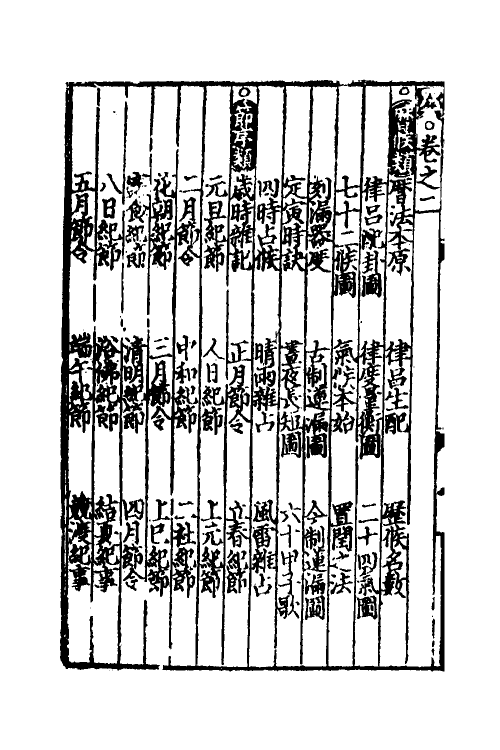 ○卷之二
○曆候類 曆法本原 律呂生配 曆候名數
律呂配卦圖 律度量衡圖 二十四氣圖
七十二候圖 氣候本始 置閏之法
刻漏器度 古制蓮漏圖 今制蓮漏圖
定寅時訣 晝夜長短圖 六十甲子歌
四時占候 晴雨雜占 風雷雜占
○節序類 歲時雜記 正月節令 立春紀節
元旦紀節 人日紀節 上元紀節
二月節令 中和紀節 二社紀節
花朝紀節 三月節令 上巳紀節
紀節 清明紀節 四月節令
八日紀節 浴佛紀節 結夏紀事
五月節令 端午紀節 競渡紀事